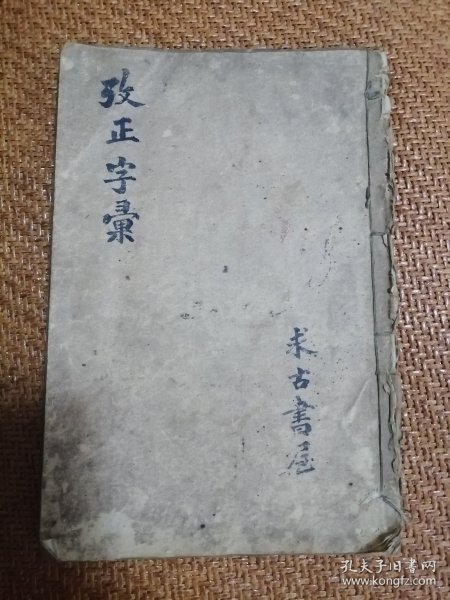 攷正字彙
求古書屋
孔夫子旧书网
www.kongfz.com